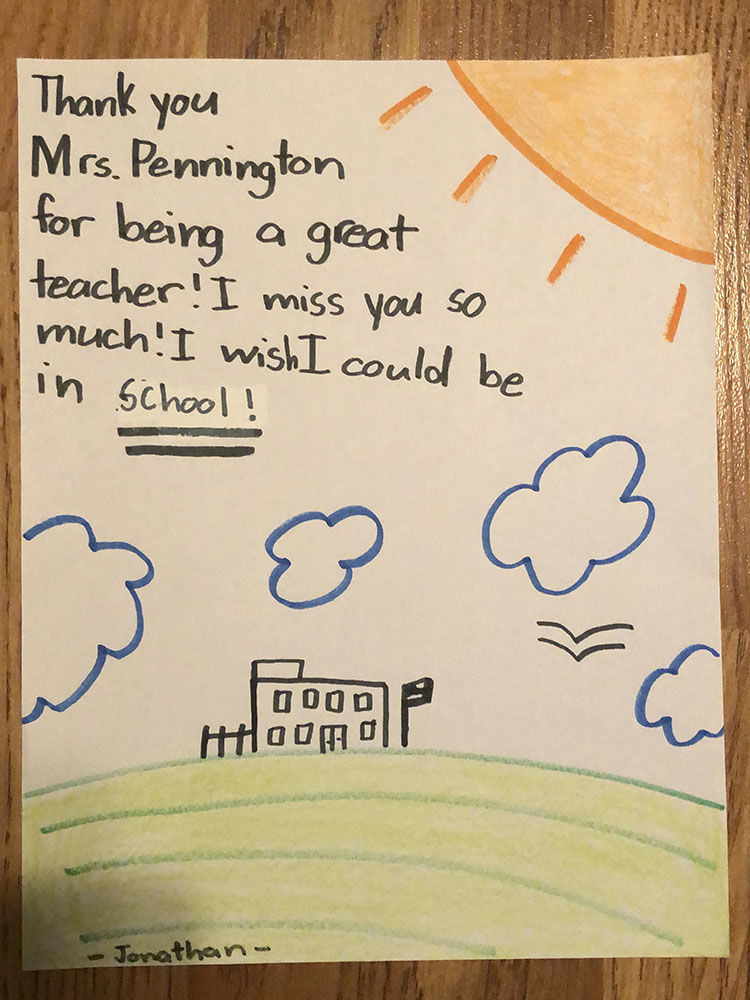 Thank you
Mrs. Pennington
for being a great
teacher! I miss you so
much! I wish I could be
in School!
- Jonathan -